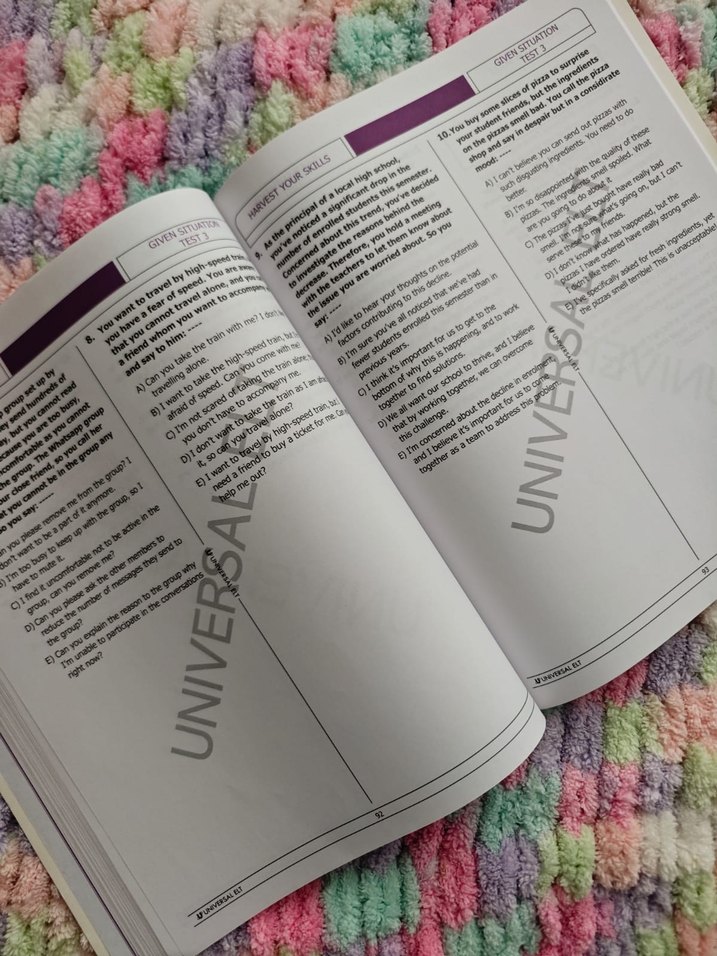 GIVEN SITUATION
TEST 3
group set up by
they send hundreds of
ay, but you cannot read
because you are too busy.
uncomfortable as you cannot
the group. The Whatsapp group
our close friend, so you call her
at you cannot be in the group any
so you say: ----
an you please remove me from the group? I
don't want to be a part of it anymore.
I'm too busy to keep up with the group, so I
have to mute it.
C) I find it uncomfortable not to be active in the
group, can you remove me?
D) Can you please ask the other members to
reduce the number of messages they send to
the group?
E) Can you explain the reason to the group why
I'm unable to participate in the conversations
right now?
8. You want to travel by high-speed train
you have a fear of speed. You are aware
that you cannot travel alone, and you
a friend whom you want to accompany
and say to him: ----
A) Can you take the train with me? I don't
travelling alone.
B) I want to take the high-speed train, but
afraid of speed. Can you come with me?
C) I'm not scared of taking the train alone,
you don't have to accompany me.
D) I don't want to take the train as I am
it, so can we travel alone?
E) I want to travel by high-speed train, but
need a friend to buy a ticket for me. Can
help me out?
UNIVERSAL ELT
UNIVERSAL ELT
92
UNIVERSAL ELT
HARVEST YOUR SKILLS
GIVEN SITUATION
TEST 3
9. As the principal of a local high school,
you've noticed a significant drop in the
number of enrolled students this semester.
Concerned about this trend, you've decided
to investigate the reasons behind the
decrease. Therefore, you hold a meeting
with the teachers to let them know about
the issue you are worried about. So you
say: ----
A) I'd like to hear your thoughts on the potential
factors contributing to this decline.
B) I'm sure you've all noticed that we've had
fewer students enrolled this semester than in
previous years.
C) I think it's important for us to get to the
bottom of why this is happening, and to work
together to find solutions.
D) We all want our school to thrive, and I believe
that by working together, we can overcome
this challenge.
E) I'm concerned about the decline in enrolment
and I believe it's important for us to come
together as a team to address this problem.
10. You buy some slices of pizza to surprise
your student friends, but the ingredients
on the pizzas smell bad. You call the pizza
shop and say in despair but in a considirate
mood: ----
A) I can't believe you can send out pizzas with
such disgusting ingredients. You need to do
better.
B) I'm so disappointed in the quality of these
pizzas. The ingredients smell spoiled. What
are you going to do about it.
C) The pizzas I've just bought have really bad
smell. I don't know what's going on, but I can't
serve these to my friends.
D) I don't know what has happened, but the
pizzas I have ordered have really strong smell.
I don't like them.
E) I've specifically asked for fresh ingredients, yet
the pizzas smell terrible! This is unacceptable!
UNIVERSAL ELT
UNIVERSAL ELT
93
UNIVERSAL ELT